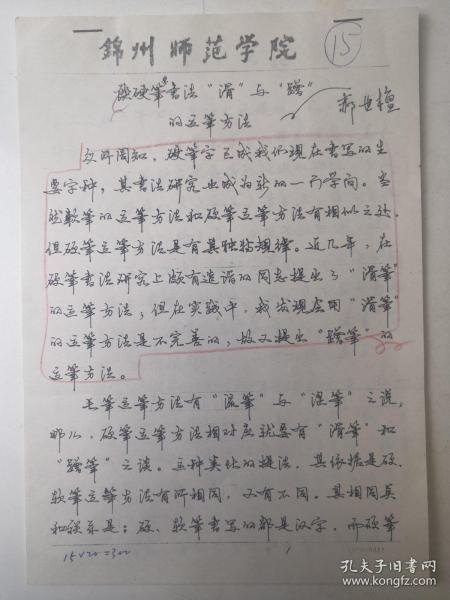 錦州师范学院
15
硬筆书法“滑”与“蹭”
的运筆方法
郝世檀
众所周知，硬筆字已成我们现在书写的主
要字种，其书法研究也成为新的一门学问。当
然软筆的运筆方法和硬筆运筆方法有相似之处，
但硬筆运筆方法是有其独特规律。近几年，在
硬筆书法研究上颇有造诣的同志提出了“滑筆”
的运筆方法，但在实践中，我发现应用“滑筆”
的运筆方法是不完善的，故又提出“蹭筆”的
运筆方法。
毛筆运筆方法有“流筆”与“涩筆”之说，
那么，硬筆运筆方法相对应就要有“滑筆”和
“蹭筆”之谈。这种类比的提法，其依据是硬、
软筆运筆方法有所相同，又有不同。其相同点
和联系是：硬、软筆书写的都是汉字，而硬筆
15×20=300
1
孔夫子旧书网
kongfz.com